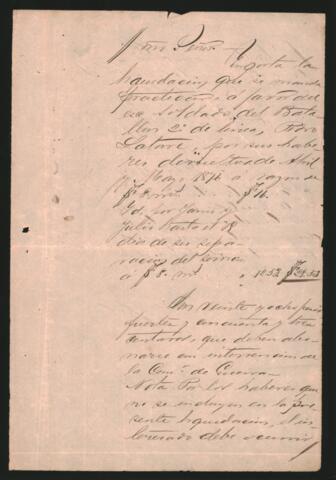 Importa la
liquidacion que se manda
practicar á favor del
ex soldado del Bata
llon 2º de linea, Pedro
Latorre, por sus habe
res devueltos de Abril
y Mayo 1874 á razon de
$ 8 m $ 16.
Id. por Junio y
Julio hasta el 18
dia de su sepa
racion del servicio
á $ 8. m " 12 53 $ 28.53
Son veinte y ocho pesos
fuertes y cincuenta y tres
centavos, que deben abo
narse con intervencion de
la Comª de Guerra
Nota. Por los haberes que
no se incluyen en la pre
sente liquidacion, el in
teresado debe ocurrir